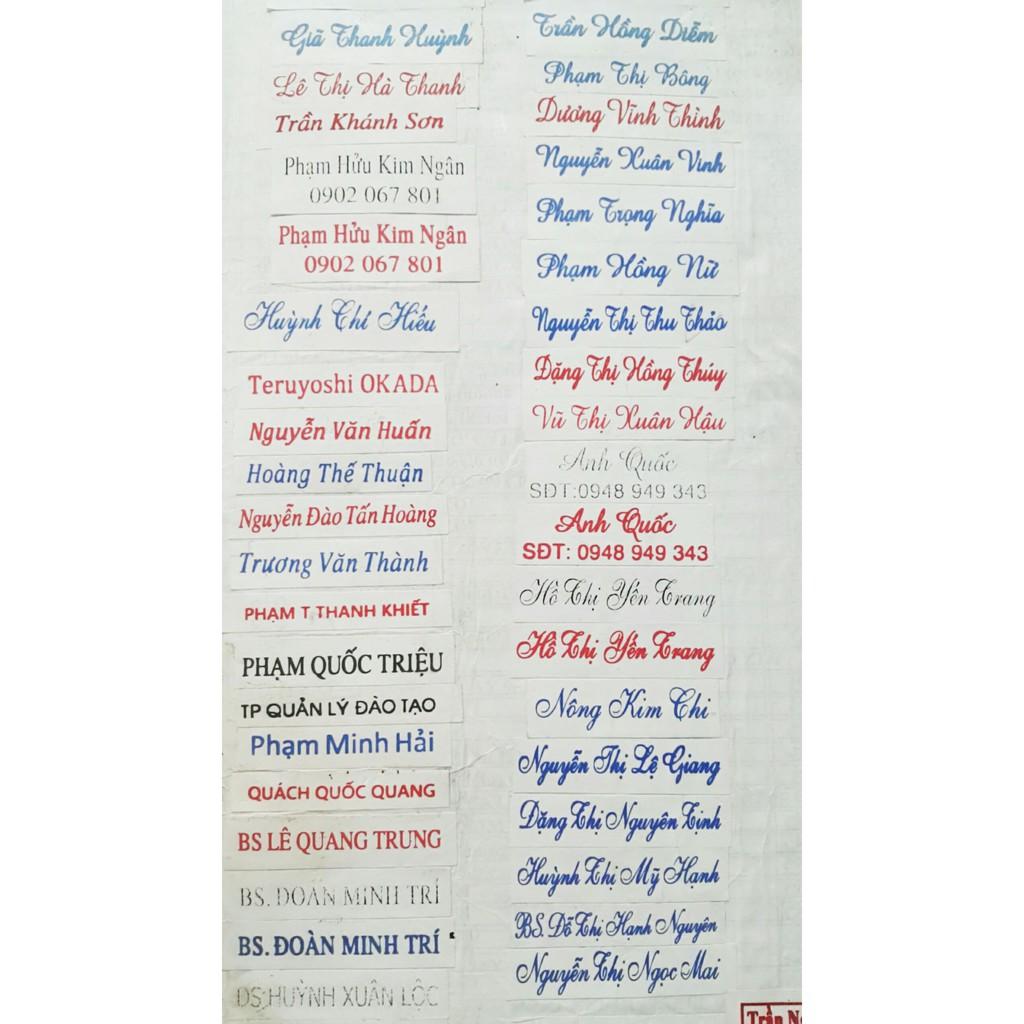 Giã Thanh Huỳnh
Lê Thị Hà Thanh
Trần Khánh Sơn
Phạm Hửu Kim Ngân
0902 067 801
Phạm Hửu Kim Ngân
0902 067 801
Huỳnh Chí Hiếu
Teruyoshi OKADA
Nguyễn Văn Huấn
Hoàng Thế Thuận
Nguyễn Đào Tấn Hoàng
Trương Văn Thành
PHẠM T THANH KHIẾT
PHẠM QUỐC TRIỆU
TP QUẢN LÝ ĐÀO TẠO
Phạm Minh Hải
QUÁCH QUỐC QUANG
BS LÊ QUANG TRUNG
BS. ĐOÀN MINH TRÍ
BS. ĐOÀN MINH TRÍ
DS:HUỲNH XUÂN LỘC
Trần Hồng Diễm
Phạm Thị Bông
Dương Vĩnh Thình
Nguyễn Xuân Vinh
Phạm Trọng Nghĩa
Phạm Hồng Nữ
Nguyễn Thị Thu Thảo
Đặng Thị Hồng Thúy
Vũ Thị Xuân Hậu
Anh Quốc
SĐT:0948 949 343
Anh Quốc
SĐT: 0948 949 343
Hồ Thị Yến Trang
Hồ Thị Yến Trang
Nông Kim Chi
Nguyễn Thị Lệ Giang
Đặng Thị Nguyên Tịnh
Huỳnh Thị Mỹ Hạnh
BS. Đỗ Thị Hạnh Nguyên
Nguyễn Thị Ngọc Mai
Trần